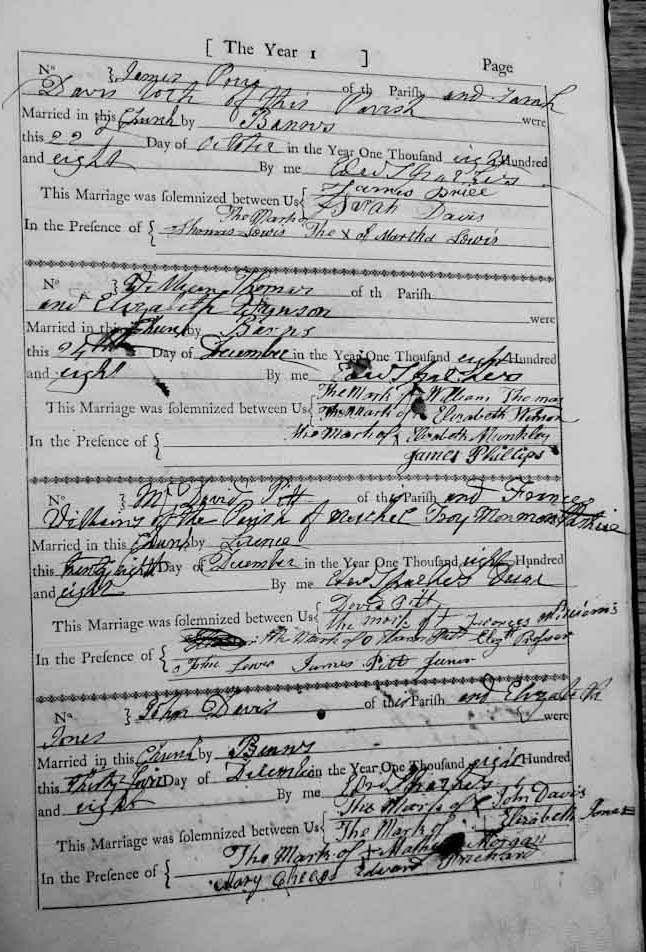 [ The Year 1 ] Page
No } James of th Parish and Sarah
Davis both of this Parish were
Married in this Church by Banns
this 22 Day of October in the Year One Thousand eight Hundred
and eight By me
This Marriage was solemnized between Us { James Price
Sarah Davis
In the Presence of { The Mark of
Thomas Lewis The x of Martha Lewis
No } William Thomas of th Parish
and Elizabeth were
Married in this Church by Banns
this 24th Day of December in the Year One Thousand eight Hundred
and eight By me
This Marriage was solemnized between Us { The Mark of William Thomas
The Mark of Elizabeth
In the Presence of { the Mark of x Elizabeth
James Phillips
No } Mr David Pitt of this Parish and Frances
Williams of the Parish of Mitchel Troy Monmouthshire
Married in this Church by Licence
this twenty eight Day of December in the Year One Thousand eight Hundred
and eight By me
This Marriage was solemnized between Us { David Pitt
the mark of Frances Williams
the Mark of Pitt Elizth Prosser
In the Presence of { John James Pitt Junior
No } John Davis of this Parish and Elizabeth
Jones were
Married in this Church by Banns
this Thirty first Day of December in the Year One Thousand eight Hundred
and eight By me
This Marriage was solemnized between Us { The Mark of John Davis
The Mark of Elizabeth Jones
In the Presence of { The Mark of x Morgan
Mary Edward